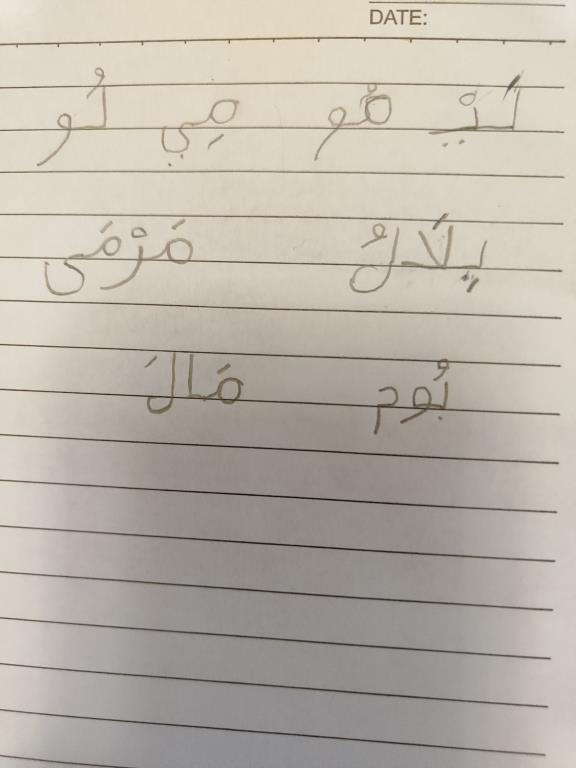 DATE:
لَيْ مُو مِي لُو
بِلَالُ مَرْمَى
بُوم مَالَ